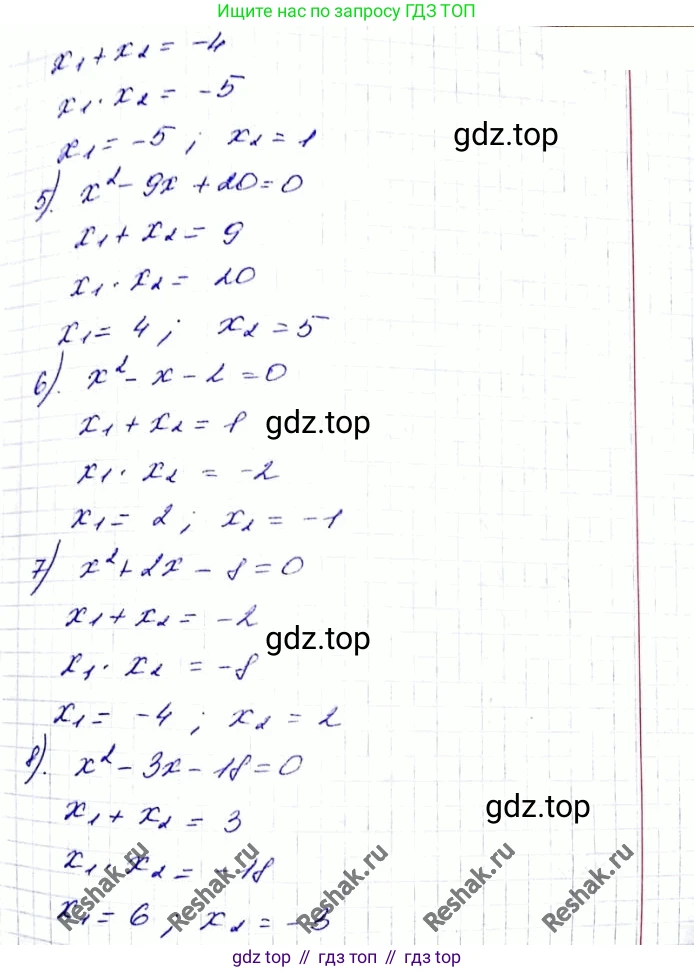 Ищите нас по запросу ГДЗ ТОП
x₁ + x₂ = -4
x₁ · x₂ = -5
x₁ = -5 ; x₂ = 1
gdz.top
5). x² - 9x + 20 = 0
x₁ + x₂ = 9
x₁ · x₂ = 20
x₁ = 4 ; x₂ = 5
6). x² - x - 2 = 0
x₁ + x₂ = 1
gdz.top
x₁ · x₂ = -2
x₁ = 2 ; x₂ = -1
7) x² + 2x - 8 = 0
x₁ + x₂ = -2
gdz.top
x₁ · x₂ = -8
x₁ = -4 ; x₂ = 2
8). x² - 3x - 18 = 0
gdz.top
x₁ + x₂ = 3
x₁ · x₂ = -18
x₁ = 6 ; x₂ = -3
Reshak.ru Reshak.ru Reshak.ru Reshak.ru Reshak.ru
gdz top // гдз топ // gdz.top